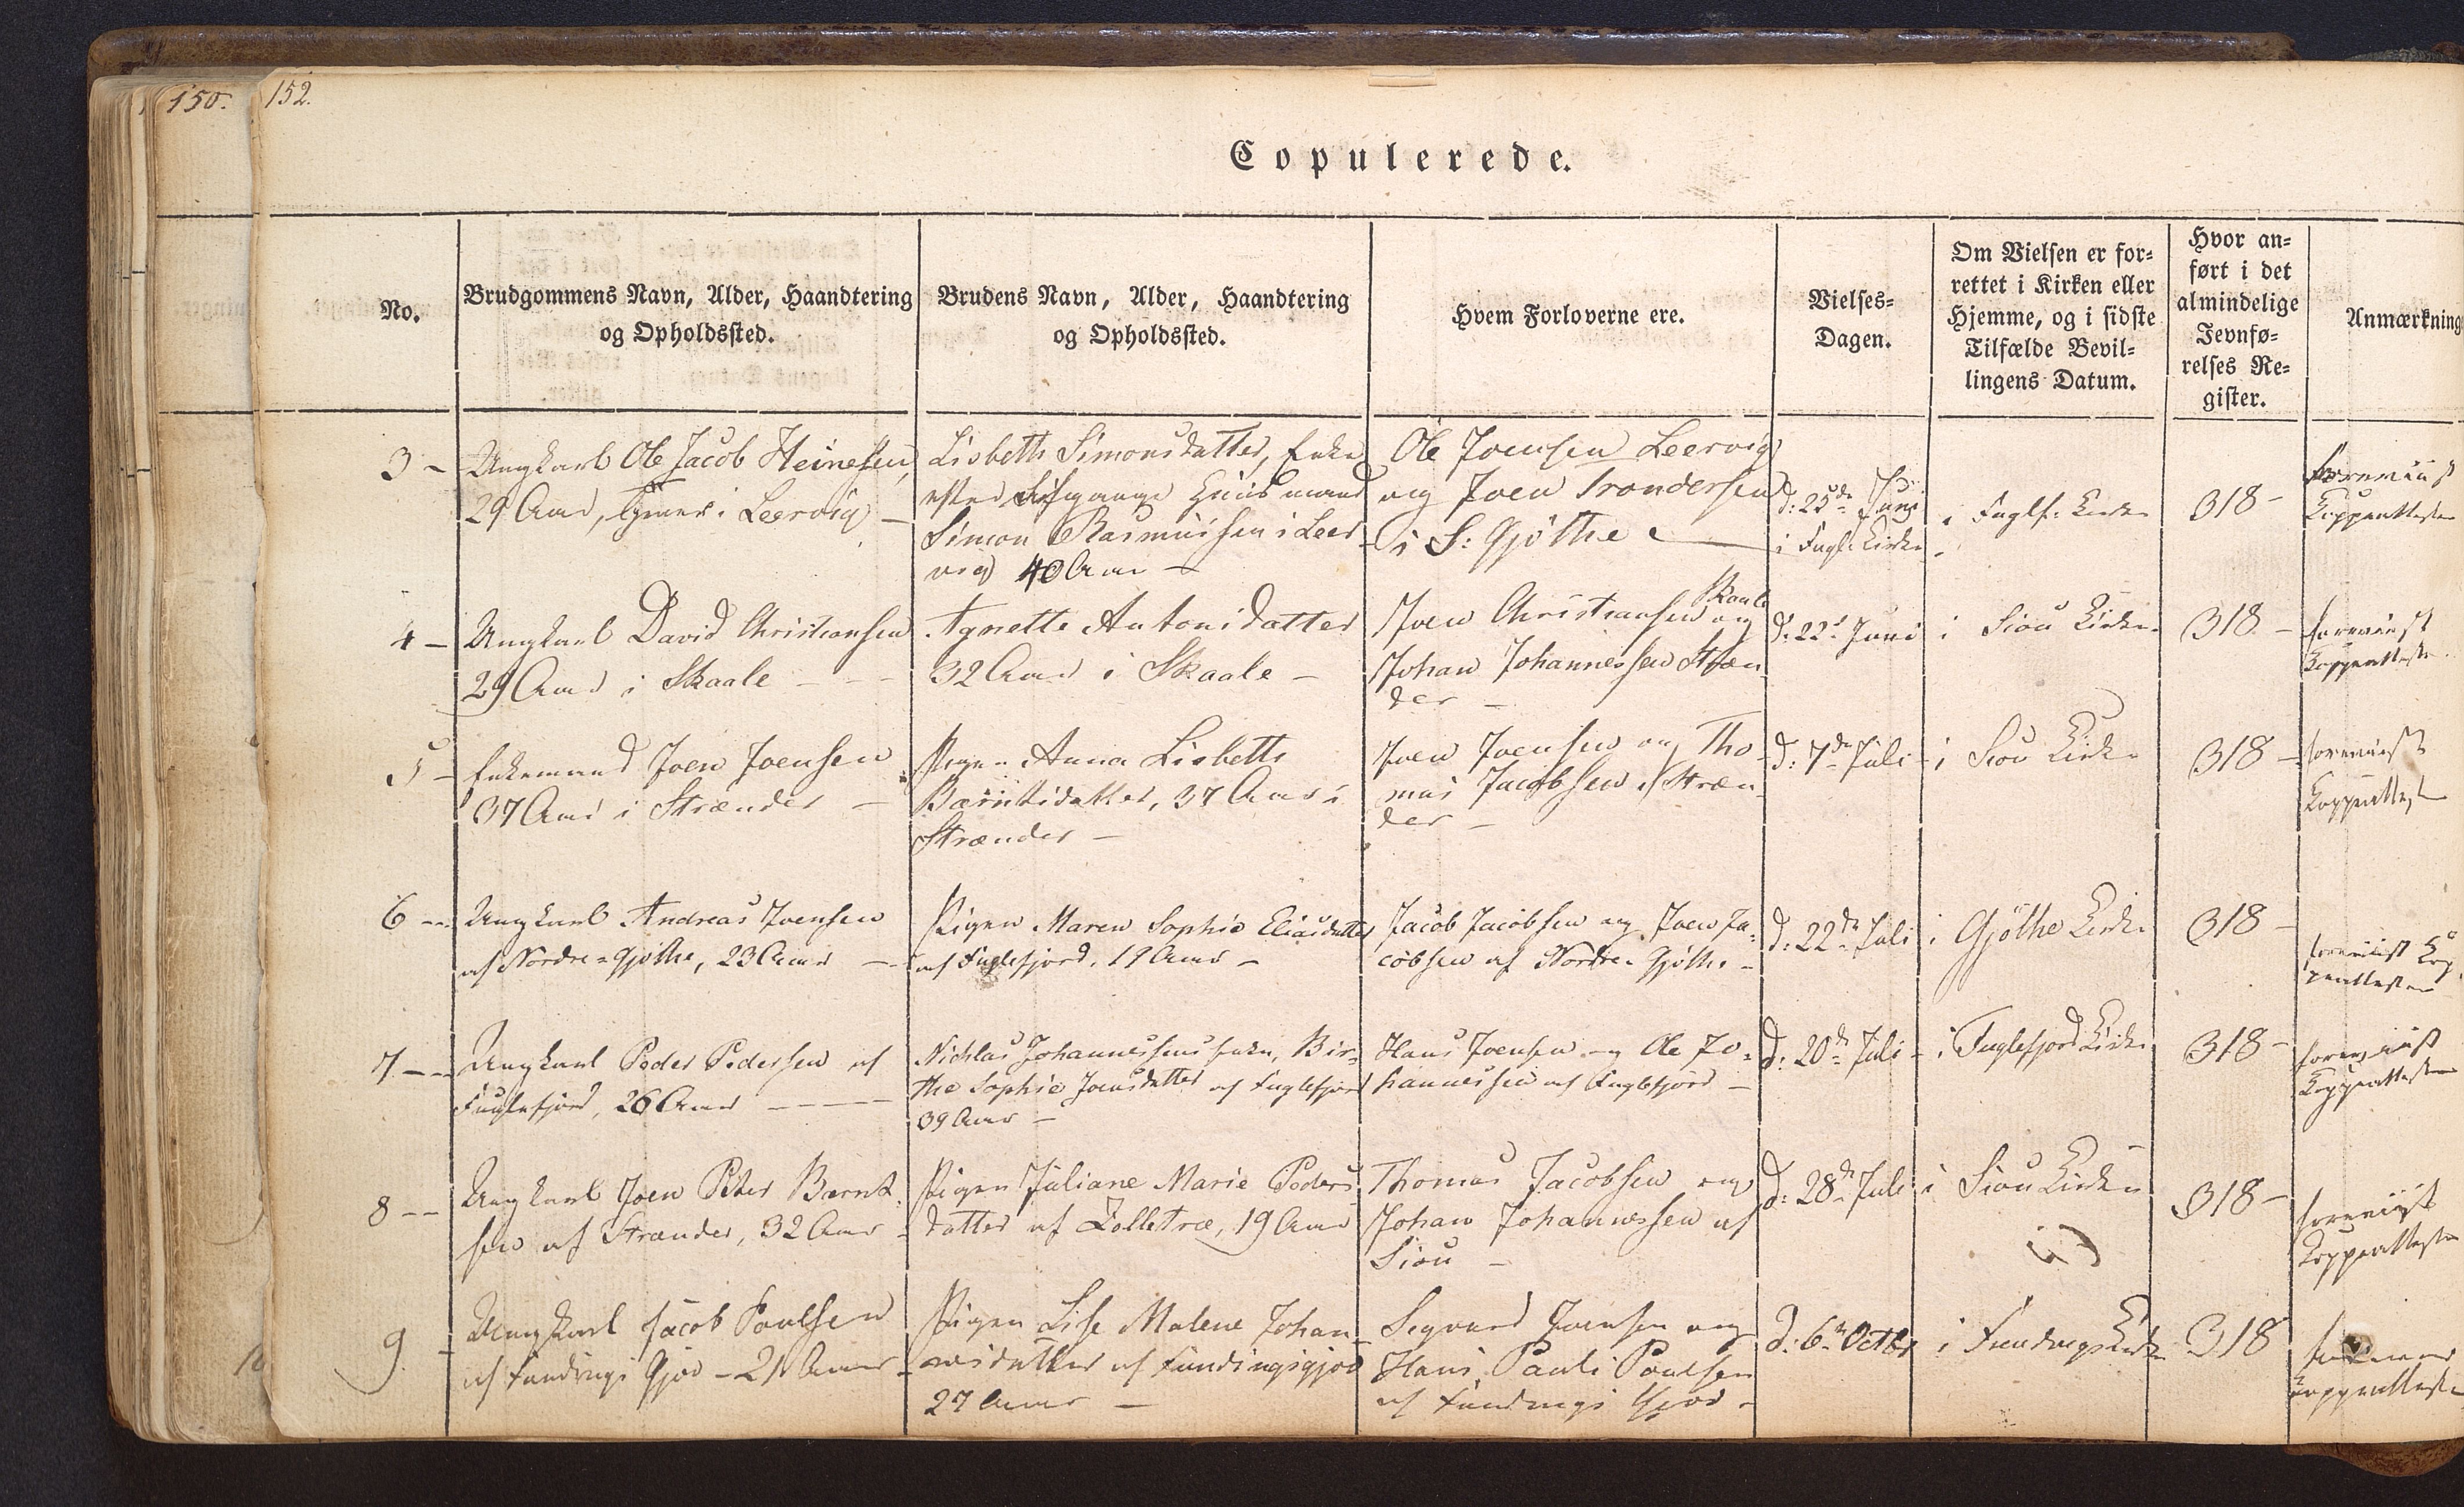 150.
152.
Copulerede.
No.
Brudgommens Navn, Alder, Haandtering
og Opholdssted.
Brudens Navn, Alder, Haandtering
og Opholdssted.
Hvem Forloverne ere.
Vielses-
Dagen.
Om Vielsen er for-
rettet i Kirken eller
Hjemme, og i sidste
Tilfælde Bevil-
lingens Datum.
Hvor an-
ført i det
almindelige
Jevnfø-
relses Re-
gister.
Anmærkning
3 -
Ungkarl Ole Jacob Heinesen,
29 Aar, i Leervig -
Lisbeth Simonsdatter, Enke
efter Huusmand
Simon Rasmussen i Leer
vig 40 Aar -
Ole Joensen Leervig
og Joen Trondersen
i S: Gjöthe
d: 25de Juni
i Fugl: Kirke
i Fuglf: Kirke
318 -
foreviist
Koppeattester
4 -
Ungkarl David Christiansen
29 Aar i Skaale - - -
Agnette Antonidatter
32 Aar i Skaale -
Skaale
Joen Christiansen og
Johan Johannessen Stræn
der -
d: 22d Juni
i Siou Kirke
318 -
foreviist
Koppeattester
5 -
Enkemand Joen Joensen
37 Aar i Strænder -
Pigen Anna Lisbeth
Bærntsdatter, 37 Aar i
Strænder -
Joen Joensen og Tho
mas Jacobsen i Stræn
der -
d: 7de Juli
i Siou Kirke
318 -
foreviist
Koppeattest
6 --
Ungkarl Andreas Joensen
af Nordre-Gjøthe, 23 Aar -
Pigen Maren Sophie Eliasdatter
af Fuglefjord, 19 Aar -
Jacob Jacobsen og Joen Ja-
cobsen af Nordre Gjøthe -
d: 22de Juli
i Gjøthe Kirke
318 -
foreviist Kop
peattester
7 --
Ungkarl Peder Pedersen af
Fuglefjord, 26 Aar ----
Nichlas Johannessens Enke, Bir-
the Sophie Joensdatter af Fuglefjord
39 Aar -
Hans Joensen og Ole Jo-
hannessen af Fuglefjord -
d: 20de Juli -
i Fuglefjord Kirke
318 -
foreviist
Koppeattester
8 --
Ungkarl Joen Peter Bærnt
sen af Strænder, 32 Aar -
Pigen Juliane Marie Peders
datter af Zolletræ, 19 Aar
Thomas Jacobsen og
Johan Johannessen af
Siou -
d: 28de Juli
i Siou Kirke
318 -
foreviist
Koppeattester
9. -
Ungkarl Jacob Poulsen
af Fundings Gjov - 21 Aar
Pigen Lise Malene Johan
nisdatter af Fundingsgjov
27 Aar -
Segvard Joensen og
Hans Pauli Poulsen
af Fundings Gjov -
d: 6te Octbr
i Fundings Kirke
318
Koppeattester